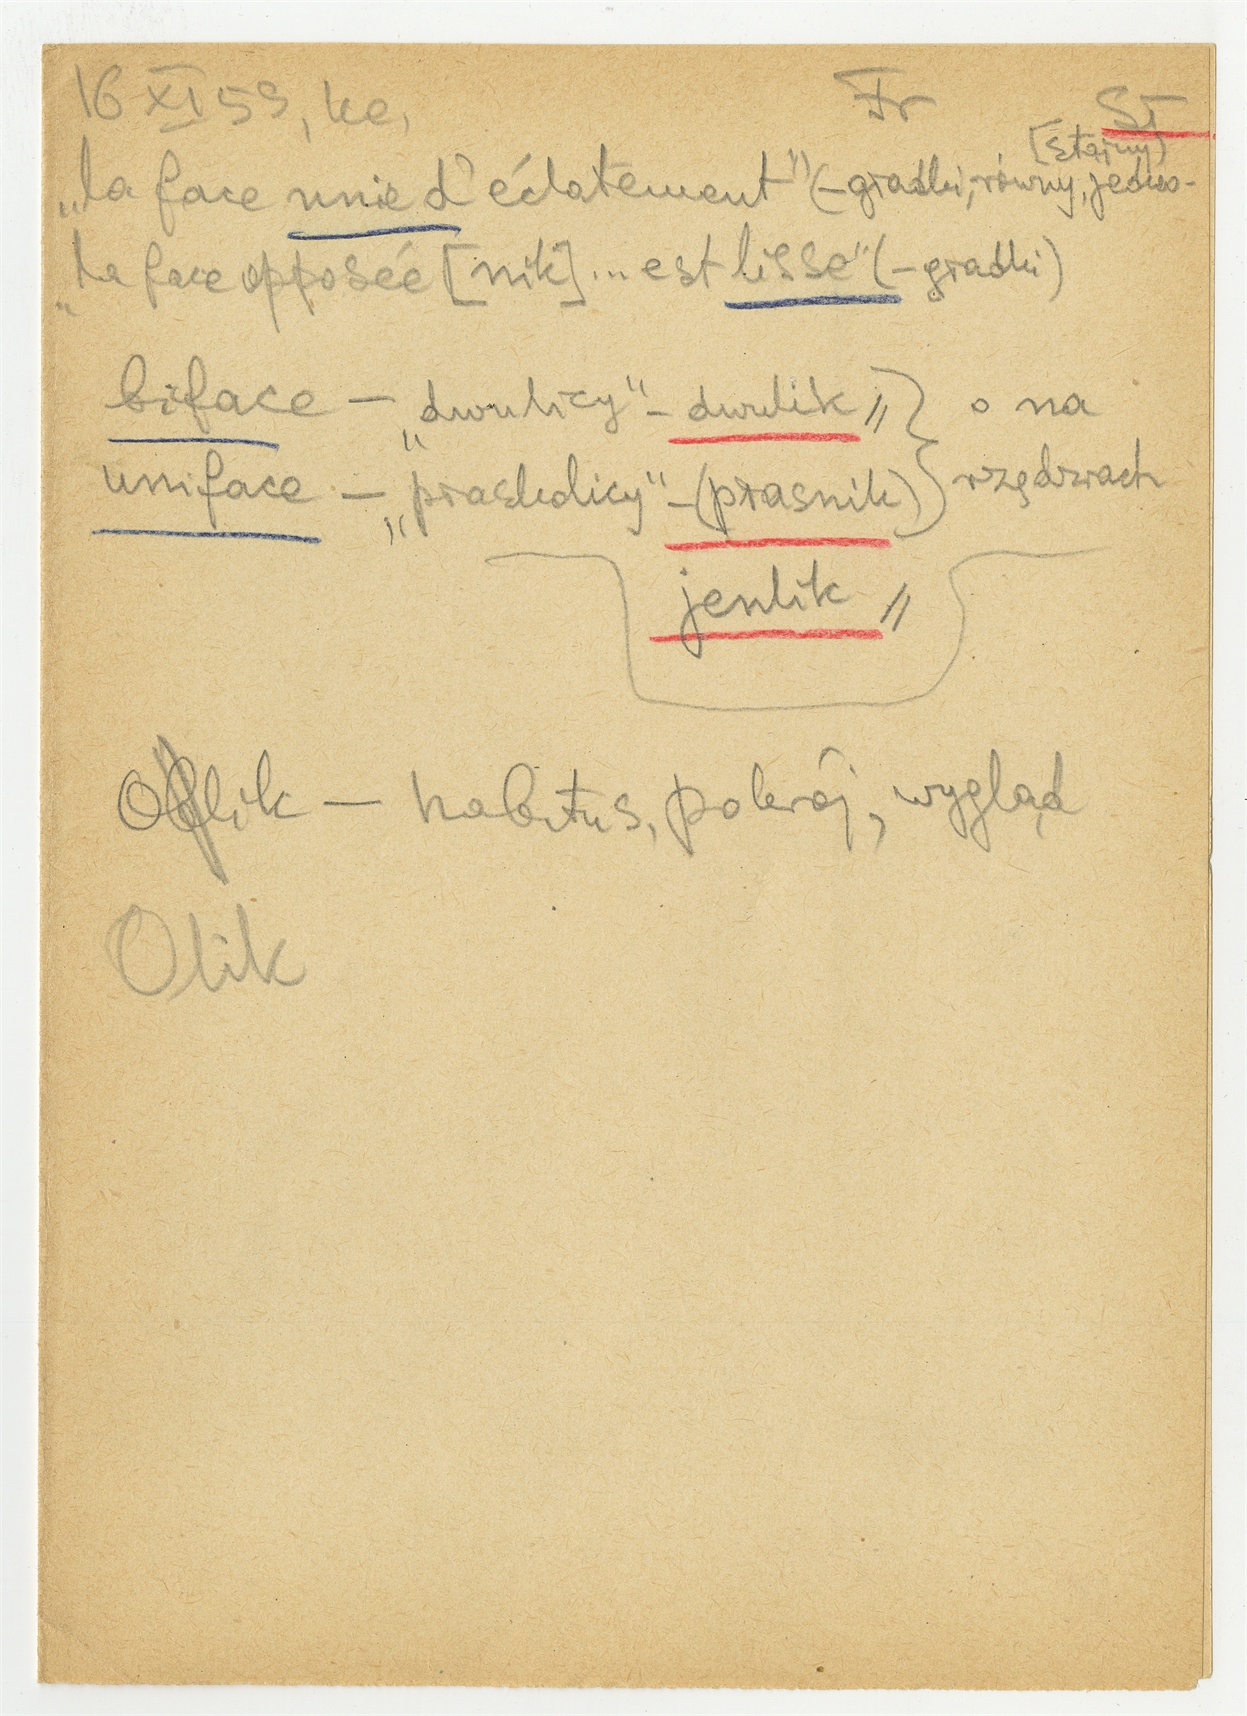 16 XI 59, ke, Fr St
„la face unie d'éclatement" (–gładki, równy, jedno-
[stajny)
„La face opposée [nik] ... est lisse" (–gładki)
biface – „dwulicy" – dwulik // } o na
uniface – „płaskolicy" – (płasnik) } rzędziach
jenlik //
Oblik – habitus, pokrój, wygląd
Olik